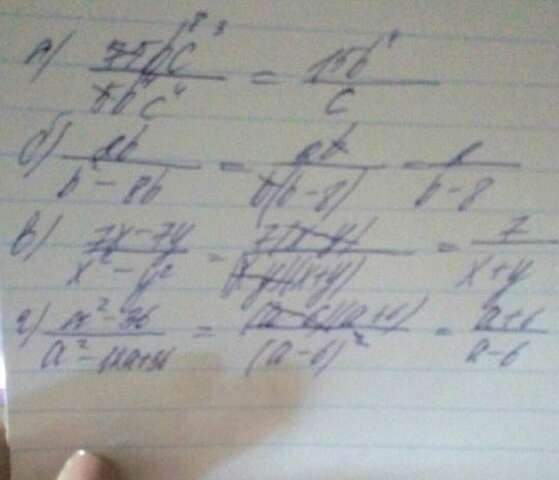 а) 75b⁸c³ / 5b⁴c⁴ = 15b⁴ / c
б) ab / b² - 8b = ab / b(b-8) = a / b-8
в) 7x-7y / x²-y² = 7(x-y) / (x-y)(x+y) = 7 / x+y
г) a²-36 / a²-12a+36 = (a-6)(a+6) / (a-6)² = a+6 / a-6